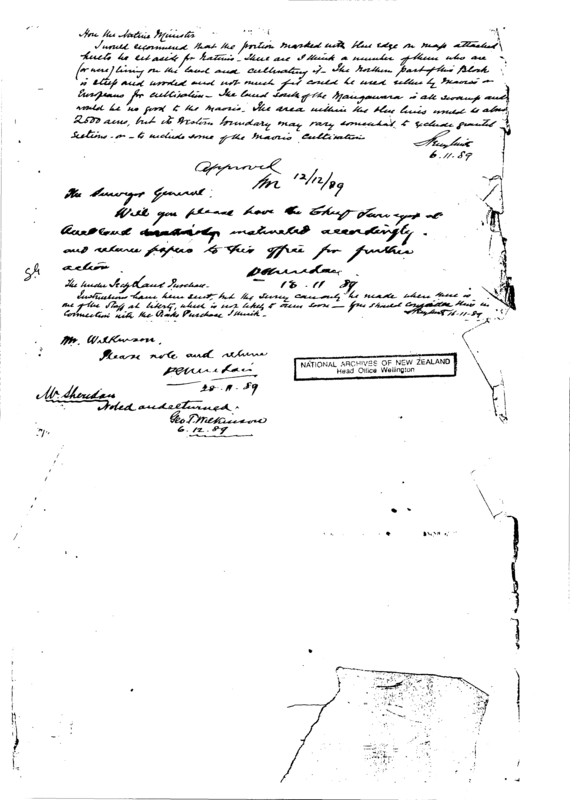 Hon the Native Minister
I would recommend that the portion marked with blue edge on map attached
hereto be set aside for Natives. There are I think a number of them who are
(or were) living on the land and cultivating it. The Northern part of this Block
is steep and wooded and not much of it could be used either by Maoris or
Europeans for cultivation. The land South of the Mangawara is all swamp and
would be no good to the Maoris. The area within the blue lines would be about
2500 acres, but its Western boundary may vary somewhat to exclude granted
Sections or to include some of the Maoris cultivation
6.11.89
Approved
12/12/89
The Surveyor General.
Will you please have the Chief Surveyor at
Auckland instructed accordingly.
and return papers to this office for further
action.
P Sheridan
18 11 89
The Under Secy Land Purchase.
Instructions have been sent, but the Survey can only be made where there is
one of the Staff at liberty, which is not likely to soon — you should consider this in
connection with the Purchase I think.
11.89
Mr. Wilkinson.
Please note and return
P Sheridan
28.11.89
Mr Sheridan
Noted and returned.
Geo T Wilkinson
6.12.89
NATIONAL ARCHIVES OF NEW ZEALAND
Head Office Wellington